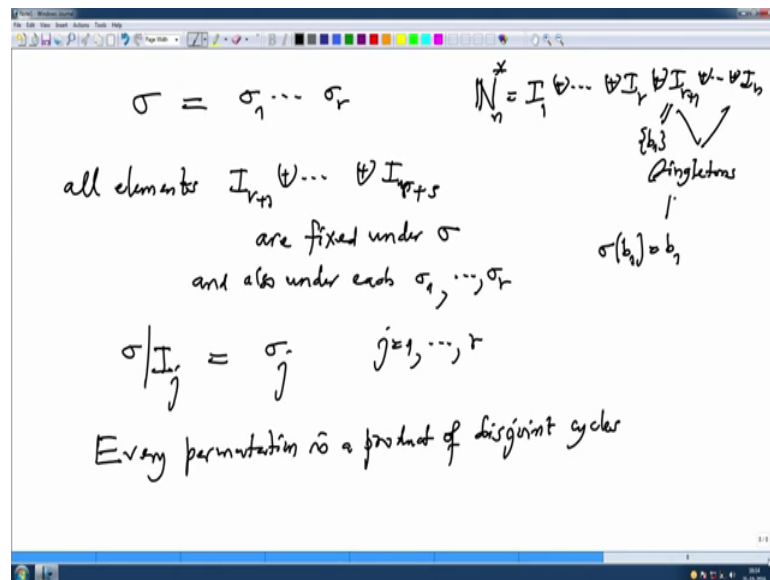 Note1 - Windows Journal
File Edit View Insert Actions Tools Help
Page Width
σ = σ₁ ⋯ σᵣ
ℕₙ* = I₁ ⊎ ⋯ ⊎ Iᵣ ⊎ Iᵣ₊₁ ⊎ ⋯ ⊎ Iₙ
{b₁}
Singletons
σ(b₁) = b₁
all elements Iᵣ₊₁ ⊎ ⋯ ⊎ Iᵣ₊ₛ
are fixed under σ
and also under each σ₁, ⋯, σᵣ
σ|Iⱼ = σⱼ j=1, ⋯, r
Every permutation is a product of disjoint cycles